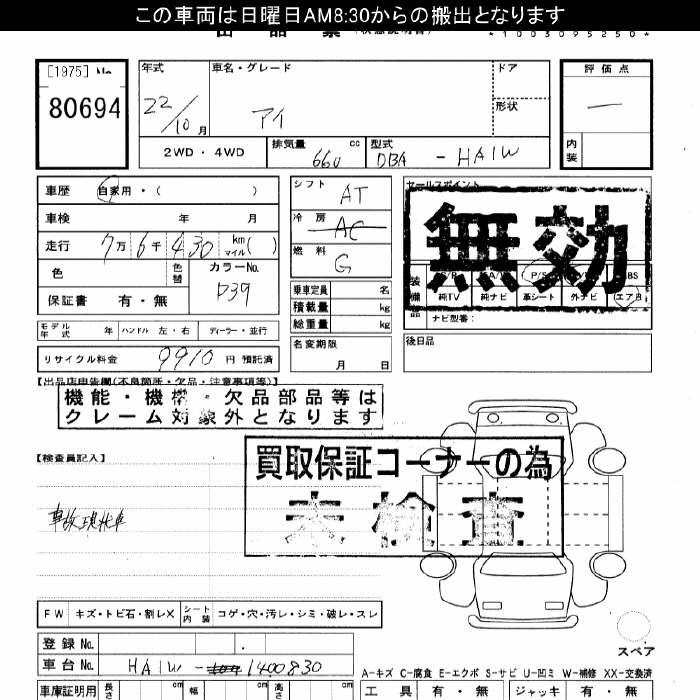 この車両は日曜日AM8:30からの搬出となります
*1003095250*
[1975] No
80694
年式
22/10 月
車名・グレード
アイ
ドア
形状
評価点
—
内装
2WD・4WD
排気量 660 cc
型式 DBA - HA1W
車歴 自家用・( )
車検 年 月
走行 7万 6千 430 km マイル ( )
色
色替
カラーNo. D39
保証書 有・無
モデル年式 年 ハンドル 左・右 ディーラー・並行
リサイクル料金 9910 円 預託済
シフト AT
冷房 AC
燃料 G
乗車定員 名
積載量 kg
総重量 kg
名変期限
月 日
セールスポイント
無効
装備品
P/S
ABS
純TV 純ナビ 革シート 外ナビ エアB
ナビ型番:
後日品
【出品店申告欄(不良箇所・欠品・注意事項等)】
機能・機構・欠品部品等は
クレーム対象外となります
【検査員記入】
買取保証コーナーの為
未検査
事故現状車
FW キズ・トビ石・割レX シート内装 コゲ・穴・汚レ・シミ・破レ・スレ
スペア
登録 No.
車台 No. HA1W - 1400830
A-キズ C-腐食 E-エクボ S-サビ U-凹ミ W-補修 XX-交換済
車庫証明用 長さ cm 幅 cm 高さ cm
工具 有・無 ジャッキ 有・無